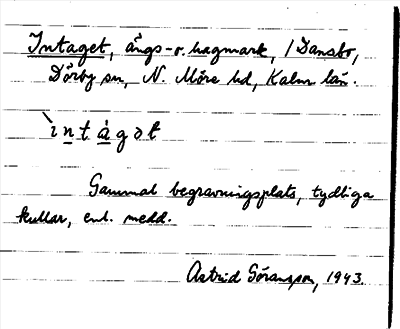 Intaget, ängs- o. hagmark, i Dansbo,
Dörby sn, N. Möre hd, Kalm län.
ìntágət
Gammal begravningsplats, tydliga
kullar, enl. medd.
Astrid Göransson, 1943.